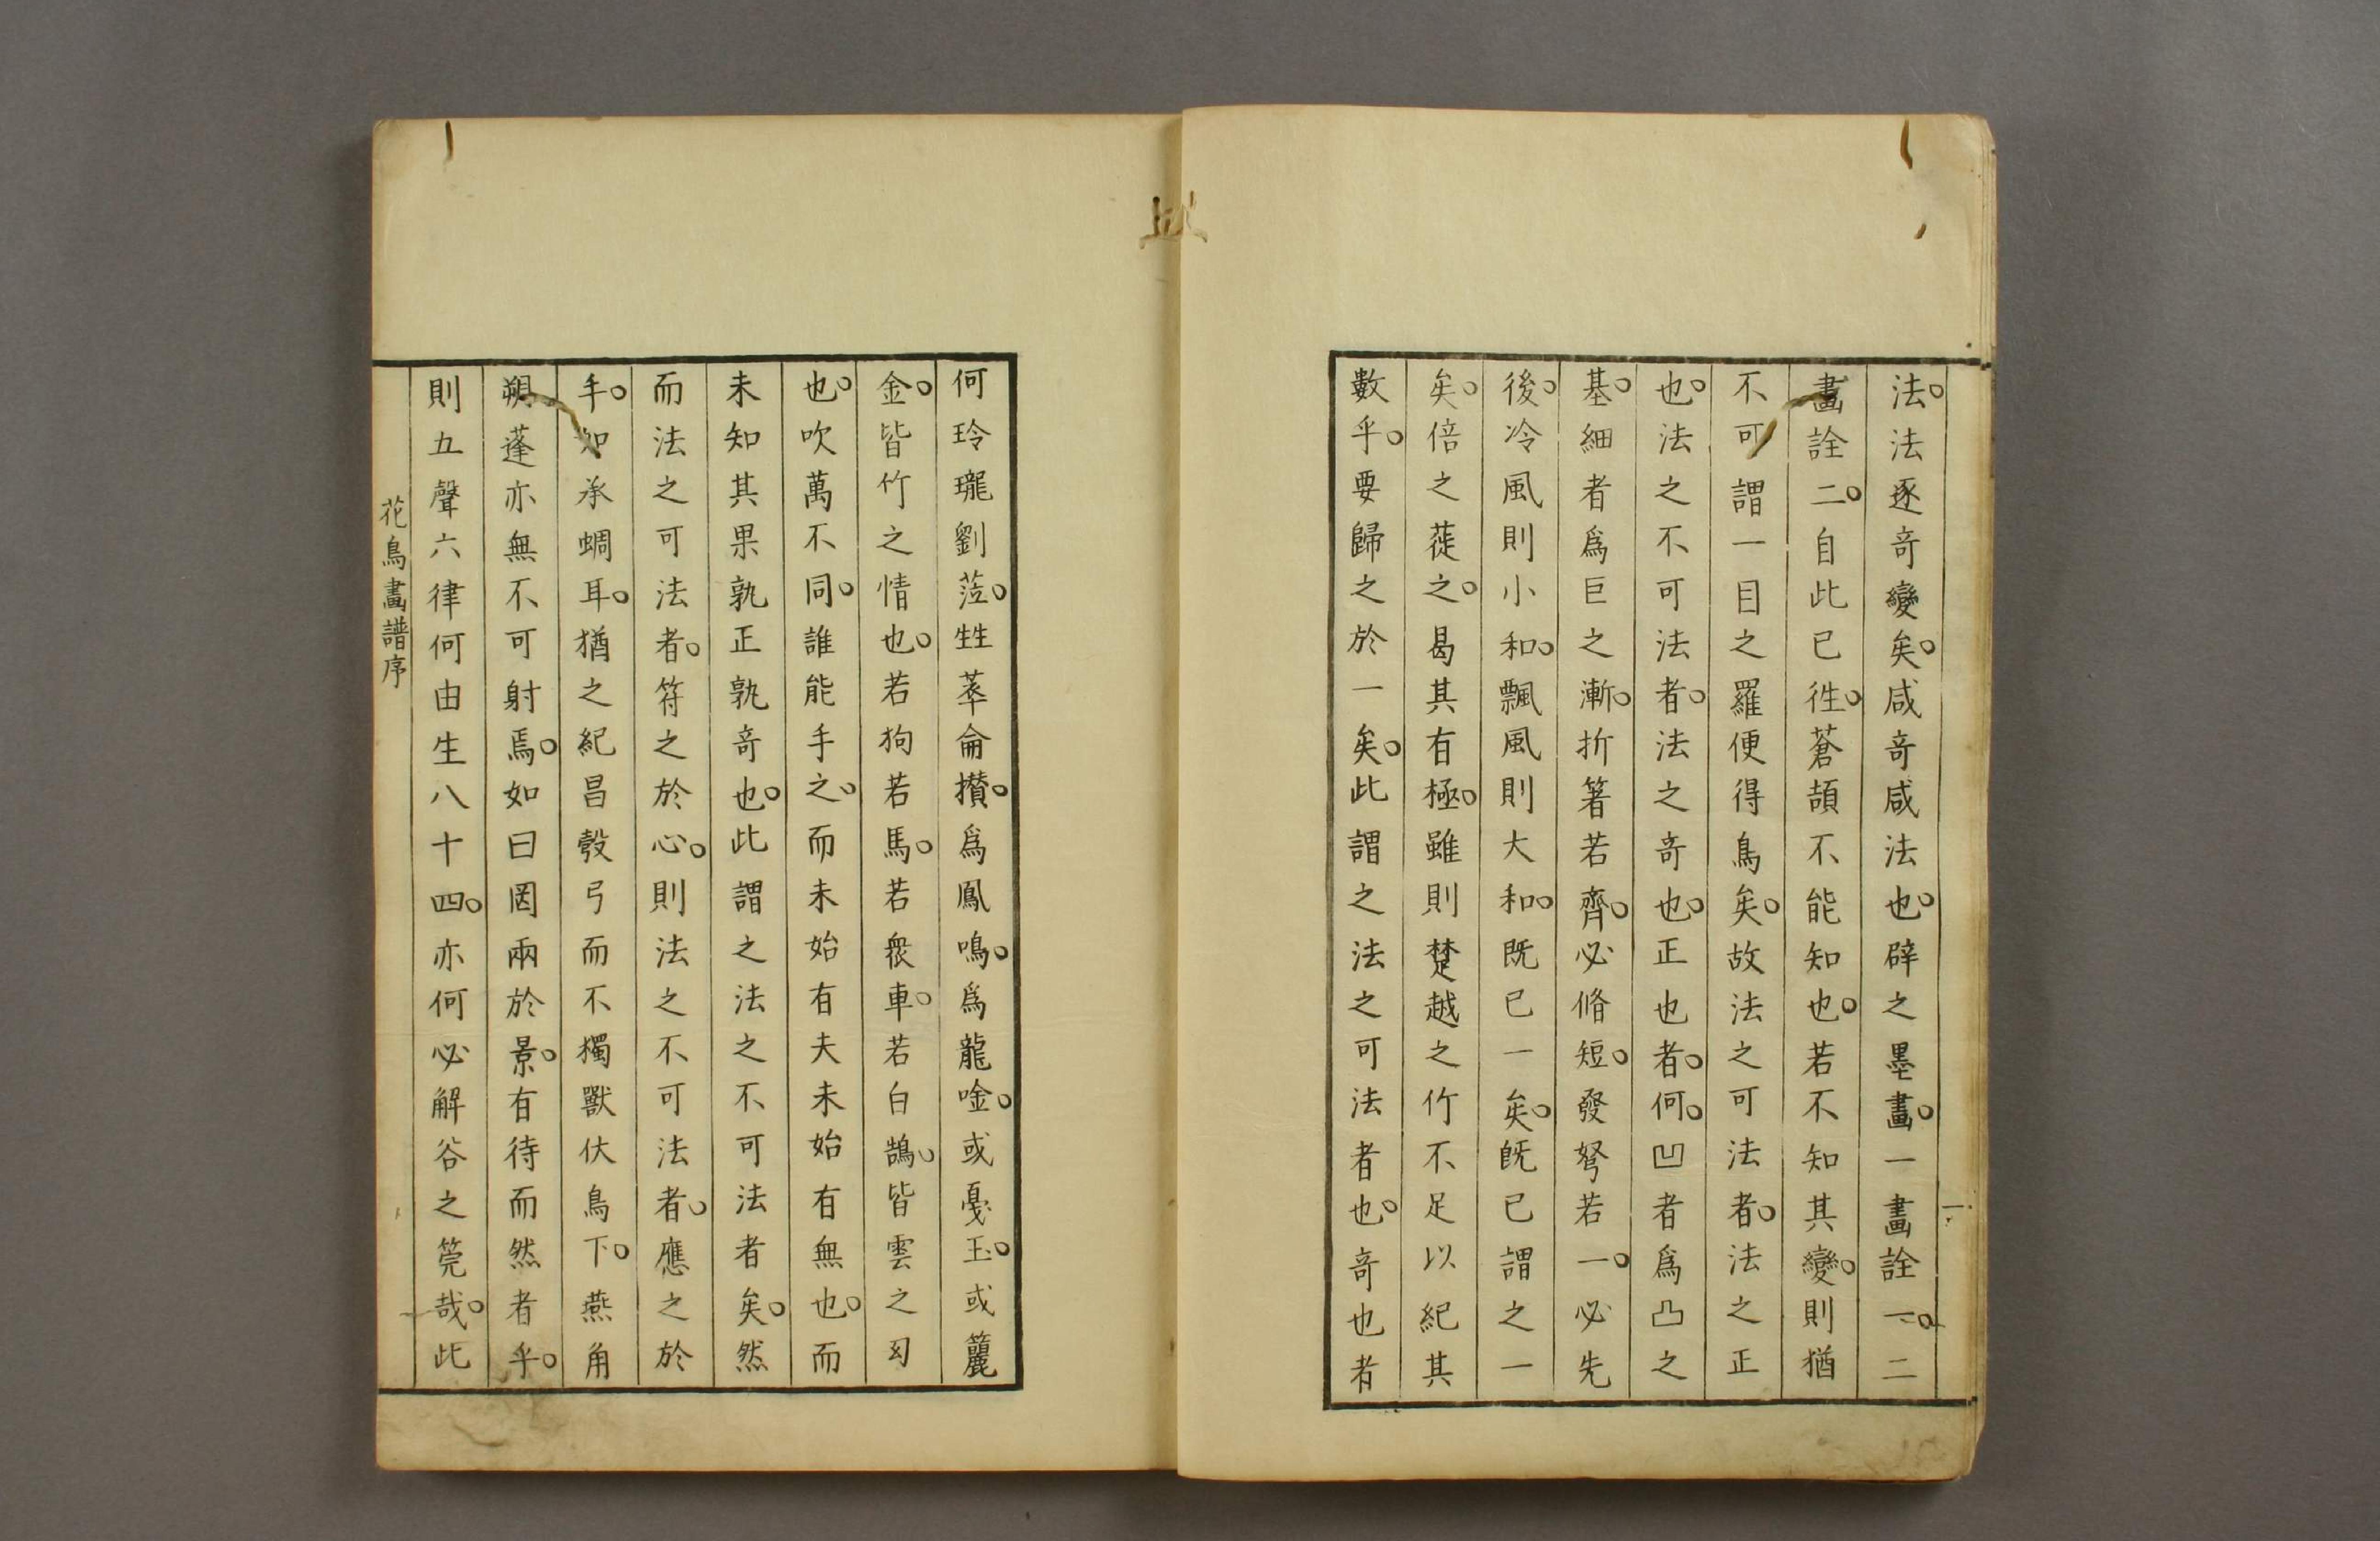 法。法逐竒變矣。咸竒咸法也。辟之墨畫。一畫詮一。二
畫詮二。自此已徃。蒼頡不能知也。若不知其變。則猶
不可謂一目之羅便得鳥矣。故法之可法者。法之正
也。法之不可法者。法之竒也。正也者。何。凹者爲凸之
基。細者爲巨之漸。折箸若齊。必脩短。發弩若一。必先
後。冷風則小和。飄風則大和。既已一矣。既已謂之一
矣。倍之蓰之。曷其有極。雖則楚越之竹不足以紀其
數乎。要歸之於一矣。此謂之法之可法者也。竒也者
何玲瓏劉莅。甡萃侖攢。爲鳳鳴。爲龍唫。或戞玉。或籭
金。皆竹之情也。若狗若馬。若衆車。若白鵠。皆雲之幻
也。吹萬不同。誰能手之。而未始有夫未始有無也。而
未知其果孰正孰竒也。此謂之法之不可法者矣。然
而法之可法者。符之於心。則法之不可法者。應之於
手。如承蜩耳。猶之紀昌彀弓而不獨獸伏鳥下。燕角
朔蓬亦無不可射焉。如曰罔兩於景。有待而然者乎。
則五聲六律何由生八十四。亦何必解谷之筦哉。此
花鳥畫譜序